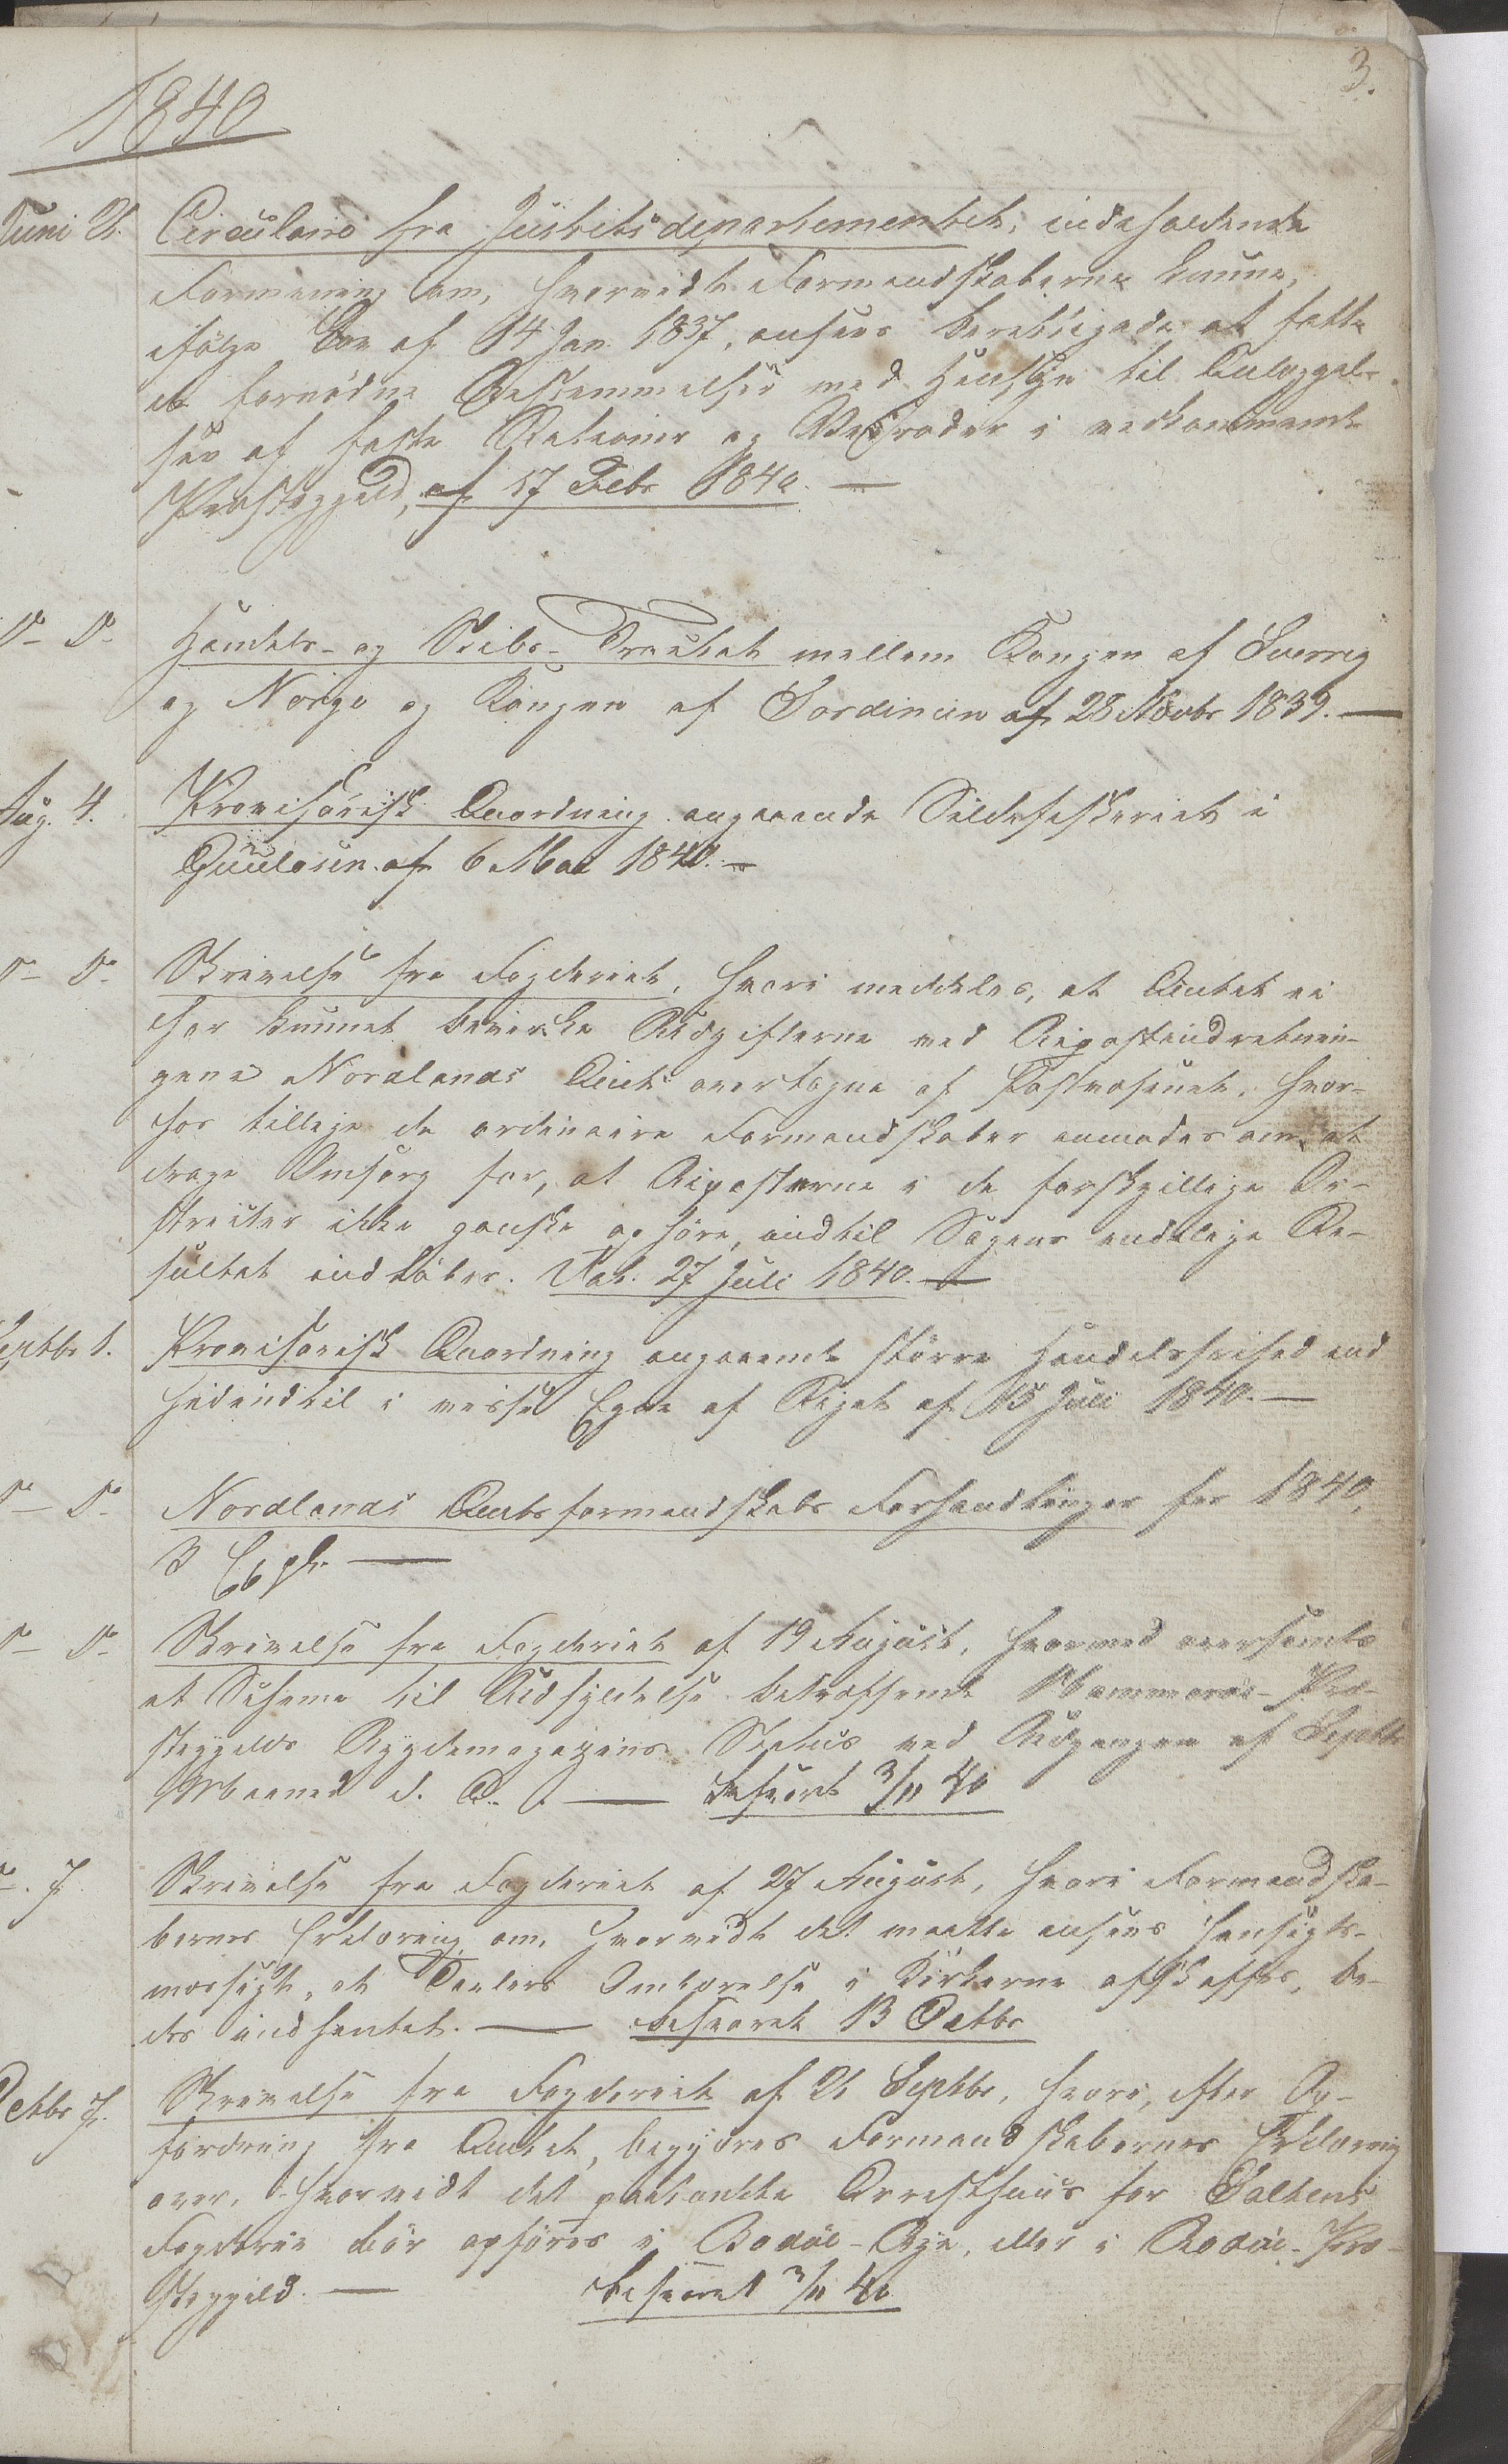 3.
1840
Juni 21. Circulaire fra Justitsdepartementet, indeholdende
Formening om, hvorvidt Formandskaberne kunne,
ifølge Lov af 14 Jan. 1837, ansees berettigede at fatte
de fornødne Bestemmelser med Hensyn til Anlæggel-
sen af faste Stationer og Veiroder i vedkommende
Præstegjeld, af 17 Febr 1840. —
D° D° Handels- og Skibs-Tractat mellem Kongen af Sverrig
og Norge og Kongen af Sardinien af 28 Novbr 1839. —
Aug. 4. Provisorisk Anordning angaaende Sildefiskeriet i
af 6 Mai 1840. —
D° D° Skrivelse fra Fogderiet, hvori meddeles, at Amtet ei
har kunnet bevirke Udgifterne ved Bipostindretnin-
gene Nordlands Amt overtagne af Postvæsenet, hvor-
for tillige de ordinaire Formandskaber anmodes om at
drage Omsorg for, at Biposterne i de forskjellige Di-
stricter ikke ganske ophøre, indtil Sagens endelige Re-
sultat indløber. Dat. 27 Juli 1840. —
Septbr 1. Provisorisk Anordning angaaende større Handelsfrihed end
hidindtil i visse Egne af Riget af 15 Juli 1840. —
D° D° Nordlands Amtsformandskabs Forhandlinger for 1840,
3 Expl. —
D° D° Skrivelse fra Fogderiet af 19 August, hvormed oversendes
et Schema til Udfyldelse betræffende Hammerøe-Præ-
stegjelds Bygdemagazins Status ved Udgangen af Septbr
Maaned d. A. — besvaret 3/11 40
D°. 7. Skrivelse fra Fogderiet af 27 August, hvori Formandska-
bernes Erklæring om, hvorvidt det maatte ansees hensigts-
mæssigt, at Tavlers Ombærelse i Kirkerne afskaffes, be-
des indhentet. — besvaret 13 Octbr
Octbr 7. Skrivelse fra Fogderiet af 21 Septbr, hvori, efter Op-
fordring fra Amtet, begjæres Formandskabernes Erklæring
over, hvorvidt det paatænkte Arresthuus for Saltens
Fogderie bør opføres i Bodøe-Bye, eller i Bodøe-Præ-
stegjeld. — besvaret 3/11 40